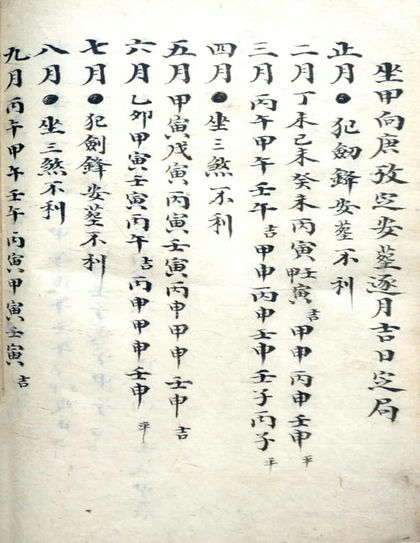 坐甲向庚攷定安葬逐月吉日定局
正月●犯劍鋒安葬不利
二月丁未己未癸未丙寅甲寅壬寅吉甲申丙申壬申平
三月丙午甲午壬午吉甲申丙申壬申壬子丙子平
四月●坐三煞不利
五月甲寅戊寅丙寅壬寅丙申甲申壬申吉
六月乙卯甲寅壬寅丙午吉丙申甲申壬申平
七月●犯劍鋒安葬不利
八月●坐三煞不利
九月丙午甲午壬午丙寅甲寅壬寅吉